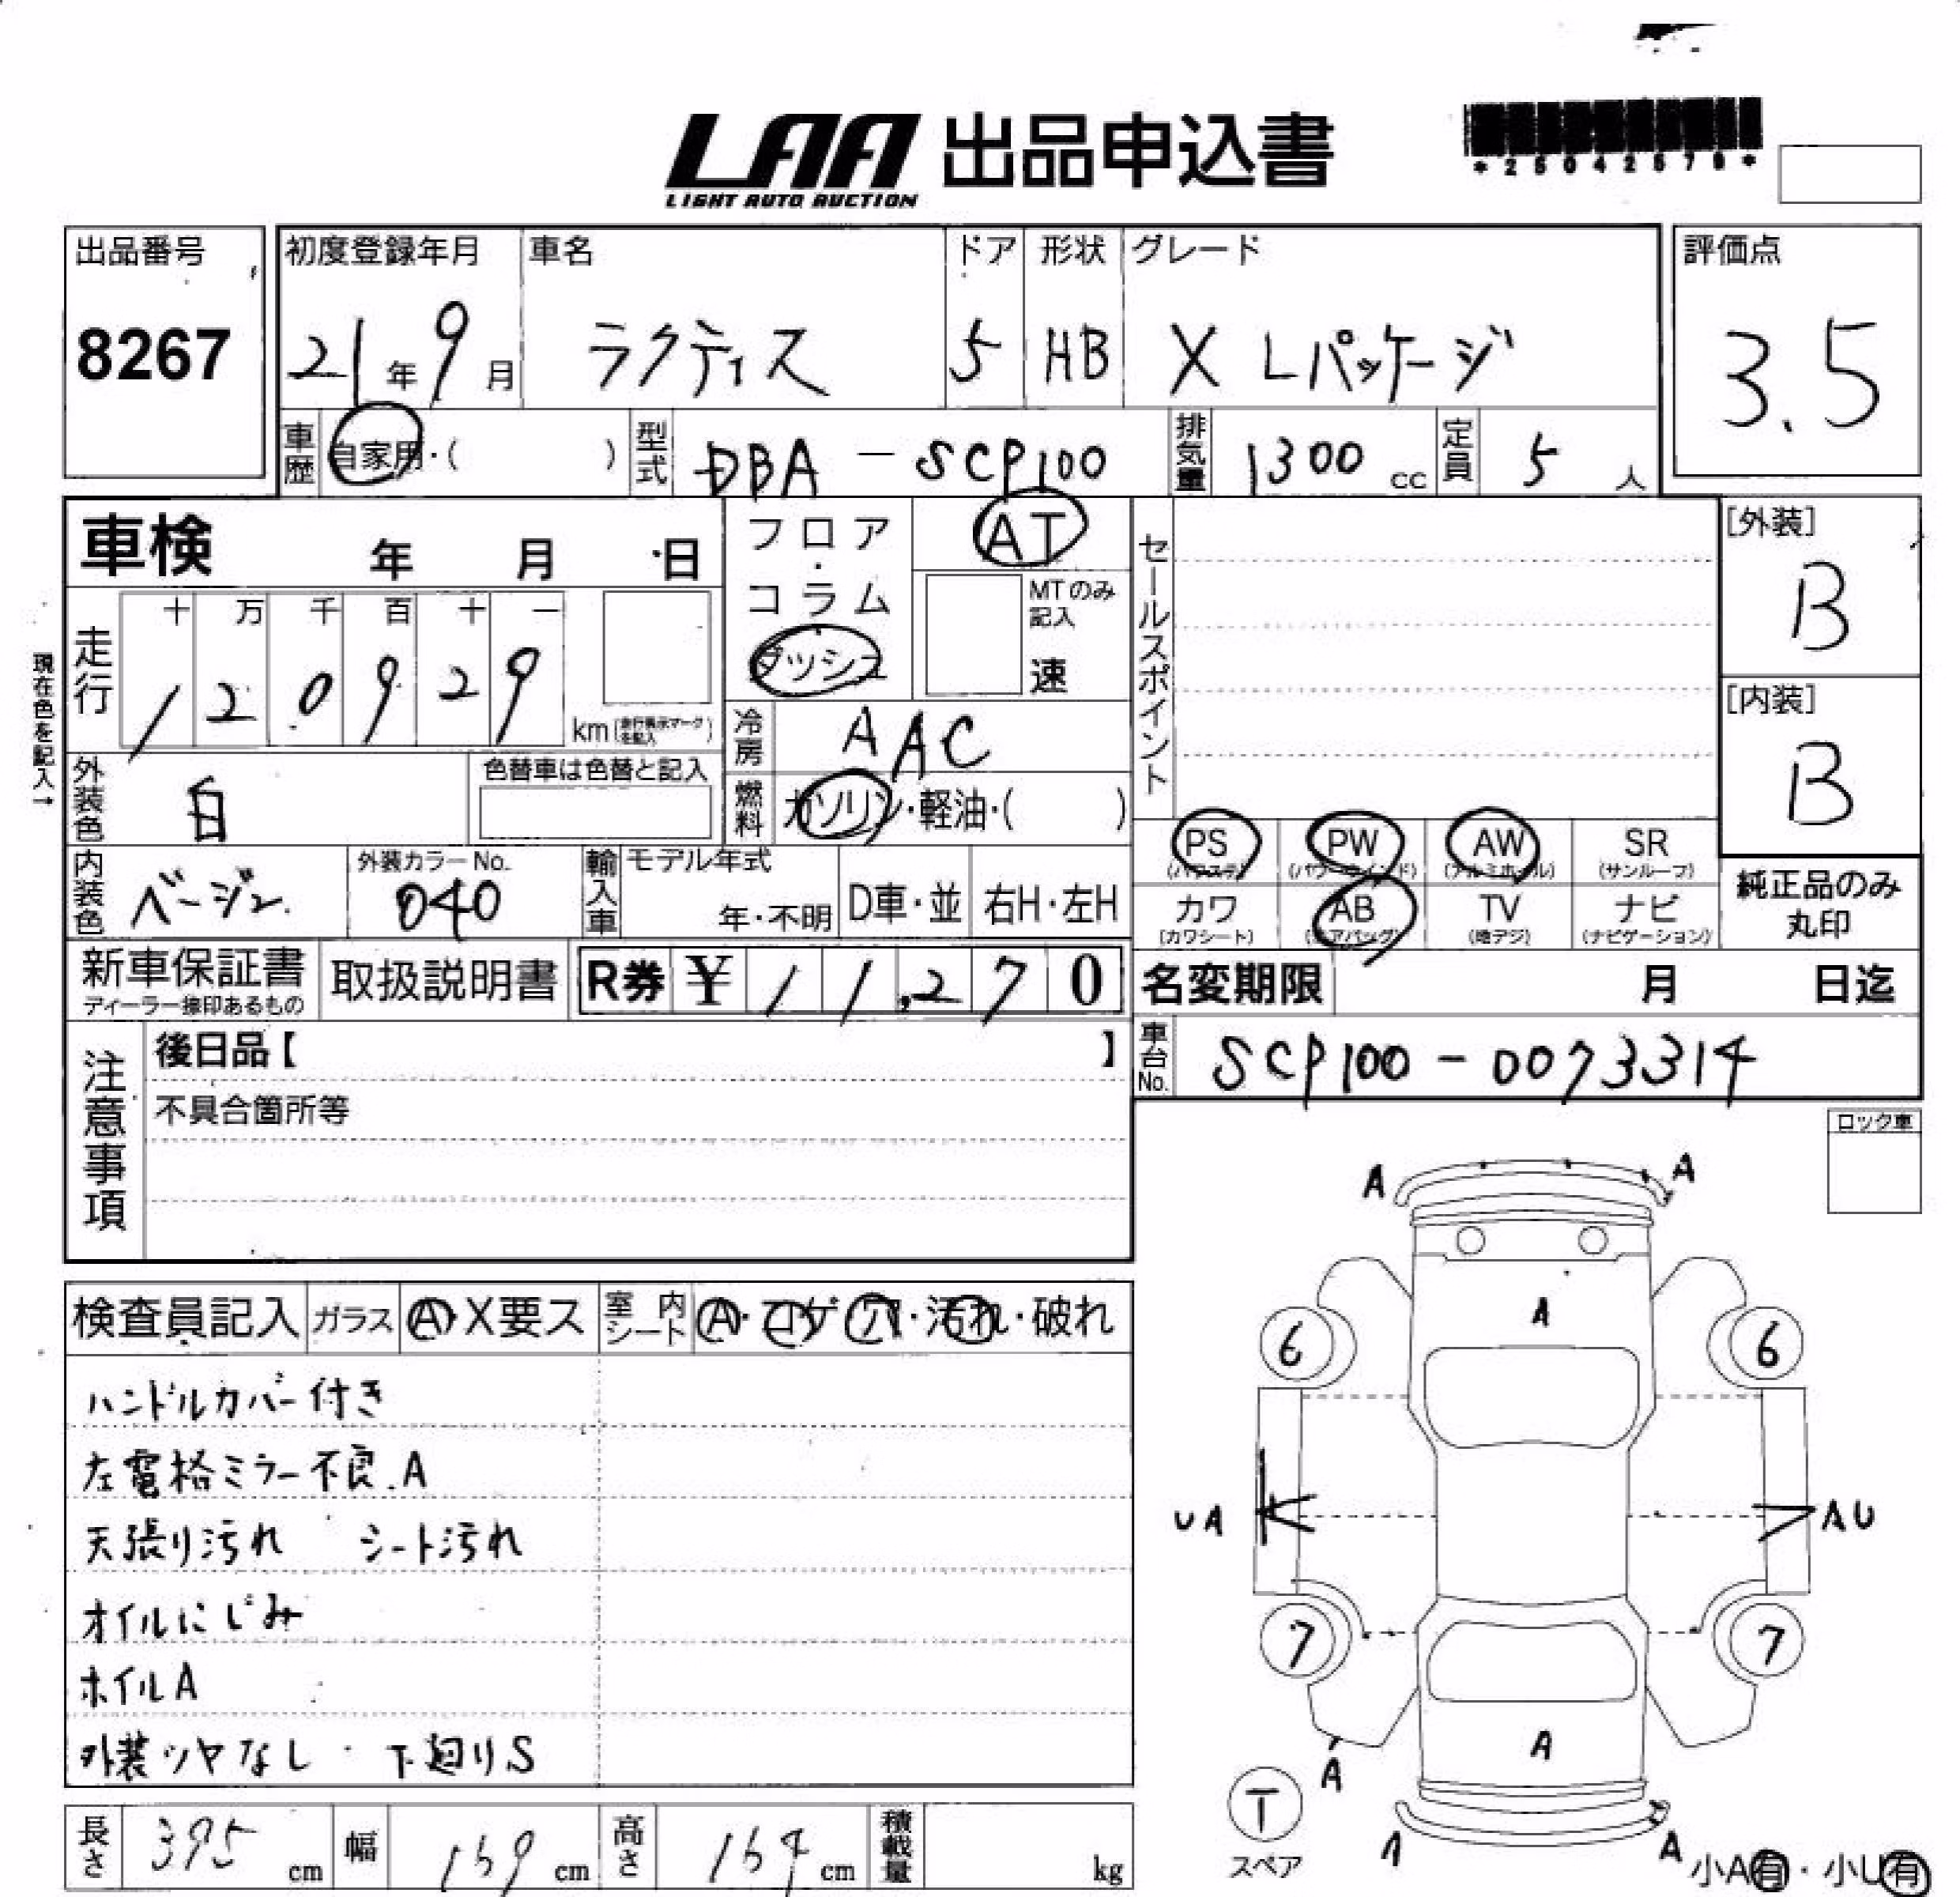 LAA 出品申込書
LIGHT AUTO AUCTION
出品番号
8267
初度登録年月
21年9月
車名
ラクティス
ドア
5
形状
HB
グレード
X Lパッケージ
評価点
3.5
車歴 自家用・( )
型式 DBA-SCP100
排気量 1300 cc
定員 5 人
車検 年 月 日
フロア・コラム
ダッシュ
AT
MTのみ記入
速
セールスポイント
[外装]
B
[内装]
B
現在色を記入→
走行
十 万 千 百 十 一
1 2 0 9 2 9
km(走行表示マークを記入)
冷房 AAC
外装色 白
色替車は色替と記入
燃料 ガソリン・軽油・( )
内装色 ベージュ
外装カラーNo.
040
輸入車
モデル年式
年・不明
D車・並
右H・左H
PS
(パワステ)
PW
(パワーウインド)
AW
(アルミホイル)
SR
(サンルーフ)
カワ
(カワシート)
AB
(エアバッグ)
TV
(地デジ)
ナビ
(ナビゲーション)
純正品のみ
丸印
新車保証書
ディーラー捺印あるもの
取扱説明書
R券 ¥ 11,270
名変期限 月 日迄
車台No. SCP100-0073314
注意事項
後日品【 】
不具合箇所等
ロック車
検査員記入 ガラス A・X要ス 室内シート A・コゲ・穴・汚れ・破れ
ハンドルカバー付き
左電格ミラー不良.A
天張り汚れ シート汚れ
オイルにじみ
ホイルA
外装ツヤなし・下廻りS
A
A
A
6
6
UA
AU
7
7
A
A
T
スペア
A
A
小A有・小U有
長さ 395 cm
幅 169 cm
高さ 164 cm
積載量 kg